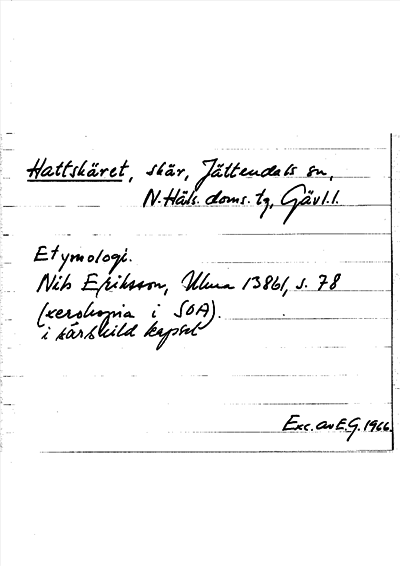 Hattskäret, skär, Jättendals sn,
N. Häls. doms. tg, Gävl. l.
Etymologi.
Nils Eriksson, Ulma 13861, s. 78
(xerokopia i SOA).
i särskild kapsel
Exc. av E.G. 1966.